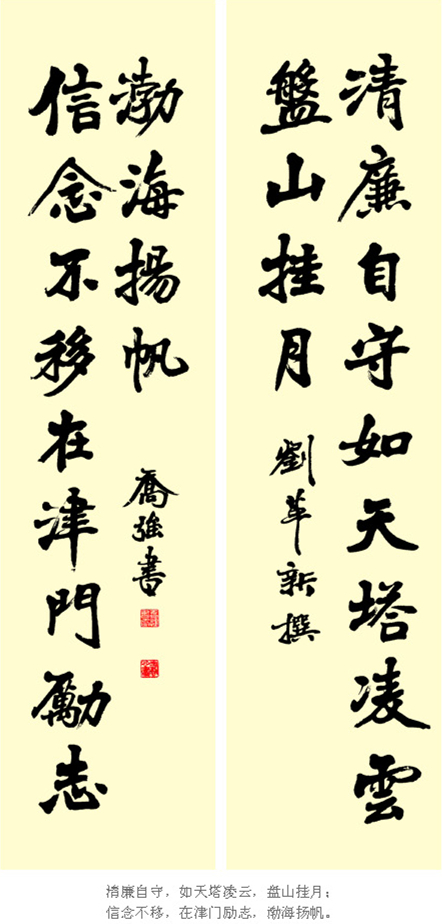 清廉自守如天塔凌雲
盤山挂月
劉革新撰
信念不移在津門勵志
渤海揚帆
喬強書
清廉自守，如天塔凌云，盘山挂月；
信念不移，在津门励志，渤海扬帆。